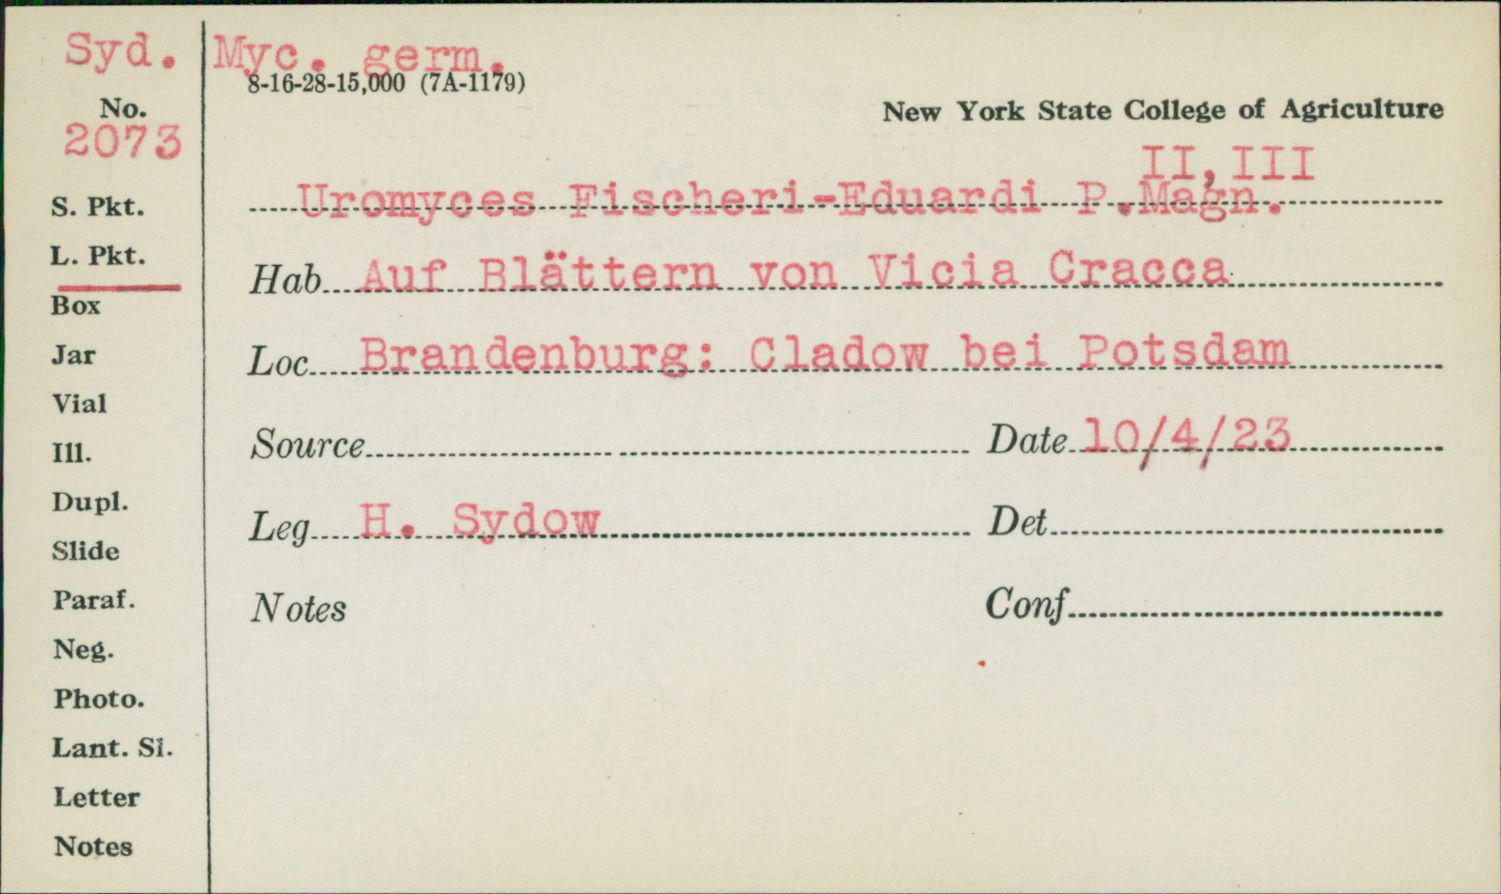 Syd. Myc. germ.
8-16-28-15,000 (7A-1179)
No.
2073
New York State College of Agriculture
II, III
Uromyces Fischeri-Eduardi P.Magn.
S. Pkt.
L. Pkt.
Box
Jar
Vial
Ill.
Dupl.
Slide
Paraf.
Neg.
Photo.
Lant. Sl.
Letter
Notes
Hab. Auf Blättern von Vicia Cracca
Loc. Brandenburg: Cladow bei Potsdam
Source
Date 10/4/23
Leg. H. Sydow
Det
Notes
Conf